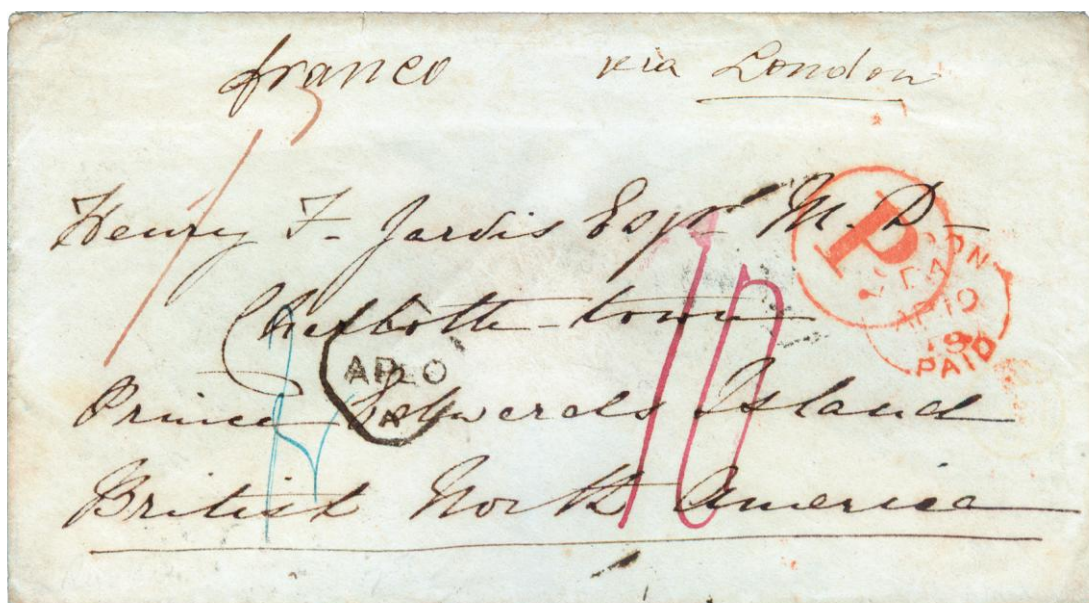 franco via London
Henry F. Jardis Esqr M. D
Charlotte-town
Prince Edwards Island
British North America
10
P
LONDON
AP 10
PAID
AP 10
A